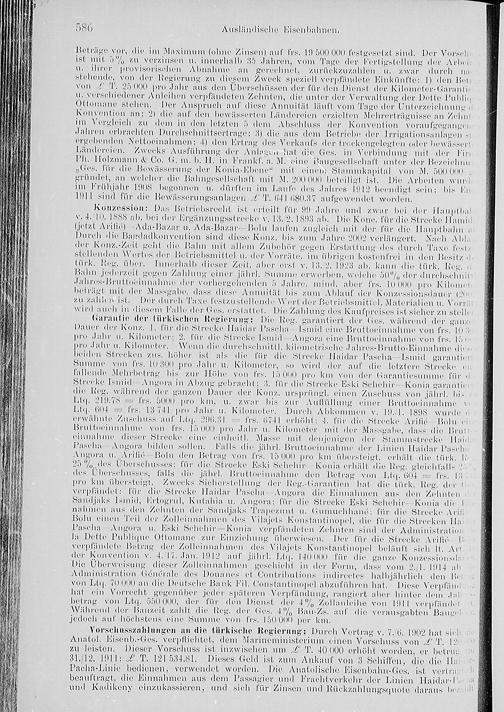 586 Ausländische Eisenbahnen.
Beträge vor, die im Maximum (ohne Zinsen) auf frs. 19 500 000 festgesetzt sind. Der
ist mit 5% zu verzinsen u. innerhalb 35 Jahren, vom Tage der Fertigstellung der
u. ihrer provisorischen Abnahme an gerechnet, zurückzuzahlen u. zwar durch
stehende, von der Regierung zu diesem Zweck speziell verpfändete Einkünfte: 1) den
von £ T. 25 000 pro Jahr aus den Überschüssen der für den Dienst der
u. verschiedener Anleihen verpfändeten Zehnten, die unter der Verwaltung der Dette
Ottomane stehen. Der Anspruch auf diese Annuität läuf vom Tage der Unterzeichnung
Konvention an; 2) die auf den bewässerten Ländereien erzielten Mehrerträgnisse an
im Vergleich zu dem in den letzten 5 dem Abschluss der Konvention
Jahren erbrachten Durchschnittsertrage; 3) die aus dem Betriebe der Irrigationsanlagen
ergebenden Nettoeinnahmen; 4) den Ertrag des Verkaufs der trockengelegten oder
Ländereien. Zwecks Ausführung der hat die Ges. in Verbindung mit der
Ph. Holzmann & Co. G. m. b. H. in Frankf. a. M. eine Baugesellschaft unter der
„Ges. für die Bewässerung der Konia-Ebene“ mit einem Stammkapital von M. 500 000
gründet, an welcher die Bahngesellschaft mit M. 200 000 beteiligt ist. Die Arbeiten
im Frühjahr 1908 begonnen u. dürften im Laufe des Jahres 1912 beendigt sein; bis
1911 sind für die Bewässerungsanlagen £ T. 641 680.37 aufgewendet worden.
Konzession: Das Betriebsrecht ist erteilt für 99 Jahre und zwar bei der
v. 4./10. 1888 ab, bei der Ergänzungsstrecke v. 13./2. 1893 ab. Die Konz. für die Strecke
(jetzt Arifié)-Ada-Bazar u. Ada-Bazar-Bolu laufen zugleich mit der für die Hauptbahn
Durch die Bagdadkonvention sind diese Konz. bis zum Jahre 2002 verlängert. Nach
der Konz.-Zeit geht die Bahn mit allem Zubehör gegen Erstattung des durch Taxe
stellenden Wertes der Betriebsmittel u. der Vorräte, im übrigen kostenfrei in den Besitz
türk. Reg. über. Innerhalb dieser Zeit, aber erst v. 13./2. 1923 ab, kann die türk. Reg.
Bahn jederzeit gegen Zahlung einer jährl. Summe erwerben, welche 50% der
Jahres-Bruttoeinnahme der vorhergehenden 5 Jahre, mind. aber frs. 10 000 pro
beträgt mit der Massgabe, dass diese Annuität bis zum Ablauf der Konzessionsdauer
zu zahlen ist. Der durch Taxe festzustellende Wert der Betriebsmittel, Materialien u.
wird auch in diesem Falle der Ges. erstattet. Die Zahlung des Kaufpreises ist sicher zu
Garantie der türkischen Regierung: Die Reg. garantiert der Ges. während der
Dauer der Konz. 1. für die Strecke Haidar Pascha-Ismid eine Bruttoeinnahme von frs.
pro Jahr u. Kilometer; 2. für die Strecke Ismid-Angora eine Bruttoeinnahme von frs.
pro Jahr u. Kilometer. Wenn die durchschnittl. kilometrische Jahres-Brutto-Einnahme
beiden Strecken zus. höher ist als die für die Strecke Haidar Pascha-Ismid
Summe von frs. 10 300 pro Jahr u. Kilometer, so wird der auf die letztere Strecke
fallende Mehrbetrag bis zur Höhe von frs. 15 000 pro km von der Garantiesumme für
Strecke Ismid-Angora in Abzug gebracht; 3. für die Strecke Eski Schehir-Konia
die Reg. während der ganzen Dauer der Konz. ursprüngl. einen Zuschuss von jährl. bis
Ltq. 219.78 = frs. 5000 pro km, u. zwar bis zur Auffüllung einer Bruttoeinnahme
Ltq. 604 = frs. 13 741 pro Jahr u. Kilometer. Durch Abkommen v. 19./1. 1898 wurde
erwähnte Zuschuss auf Ltq. 296.31 = frs. 6741 erhöht; 4. für die Strecke Arifié-Bolu
Bruttoeinnahme von frs. pro Jahr u. Kilometer mit der Massgabe, dass die
einnahme dieser Strecke eine einheitl. Masse mit denjenigen der Stammstrecke
Pascha-Angora bilden sollen. Falls die jährl. Bruttoeinnahme der Linien Haidar
Angora u. Arifié-Bolu den Betrag von frs. 15 000 pro km übersteigt, erhält die türk.
25% des Überschusses; für die Strecke Eski Schehir-Konia erhält die Reg. gleichfalls
des Überschusses, falls die jährl. Bruttoeinnahme den Betrag von Ltq. 604 = frs.
pro km übersteigt. Zwecks Sicherstellung der Reg.-Garantien hat die türk. Reg. der
verpfändet: für die Strecke Haidar Pascha-Angora die Einnahmen aus den Zehnten
Sandjaks Ismid, Ertogrul, Kutahia u. Angora; für die Strecke Eski Schehir-Konia die
nahmen aus den Zehnten der Sandjaks Trapezunt u. Gumuchhané; für die Strecke
Bolu einen Teil der Zolleinnahmen des Vilajets Konstantinopel, die für die Strecken
Pascha-Angora u. Eski Schehir-Konia verpfändeten Zehnten sind der Administration
la Dette Publique Ottomane zur Einziehung überwiesen. Der für die Strecke Arifié-
verpfändete Betrag der Zolleinnahmen des Vilajets Konstantinopel beläuft sich lt. Art.
der Konvention v. 4./17. Jan. 1912 auf jährl. Ltq. 140 000 für die ganze
Die Überweisung dieser Zolleinnahmen geschieht in der Form, dass vom 2./1. 1914 ab
Administration Générale des Douanes et Contributions indirectes halbjährlich den
von Ltq. 70 000 an die Deutsche Bank Fil. Constantinopel abzuführen hat. Diese
hat ein Vorrecht gegenüber jeder späteren Verpfändung, rangiert aber hinter dem
betrag von Ltq. 500 000, der für den Dienst der 4% Zollanleihe von 1911 verpfändet
Während der Bauzeit zahlt die Reg. der Ges. 4% Bau-Zs. auf die verausgabten
jedoch auf höchstens eine Summe von frs. 150 000 per km.
Vorschusszahlungen an die türkische Regierung: Durch Vertrag v. 7./6. 1902 hat sich
Anatol. Eisenb.-Ges. verpflichtet, dem Marineministerium einen Vorschuss von £ T.
zu leisten. Dieser Vorschuss ist inzwischen um £ T. 40 000 erhöht worden, er betrug
31./12. 1911: £ T. 121 534.81. Dieses Geld ist zum Ankauf von 3 Schiffen, die die
Pacha-Linie bedienen, verwendet worden. Die Anatolische Eisenbahn-Ges. ist
beauftragt, die Einnahmen aus dem Passagier und Frachtverkehr der Linien
und Kadikeny einzukassieren, und sich für Zinsen und Rückzahlungsquote daraus